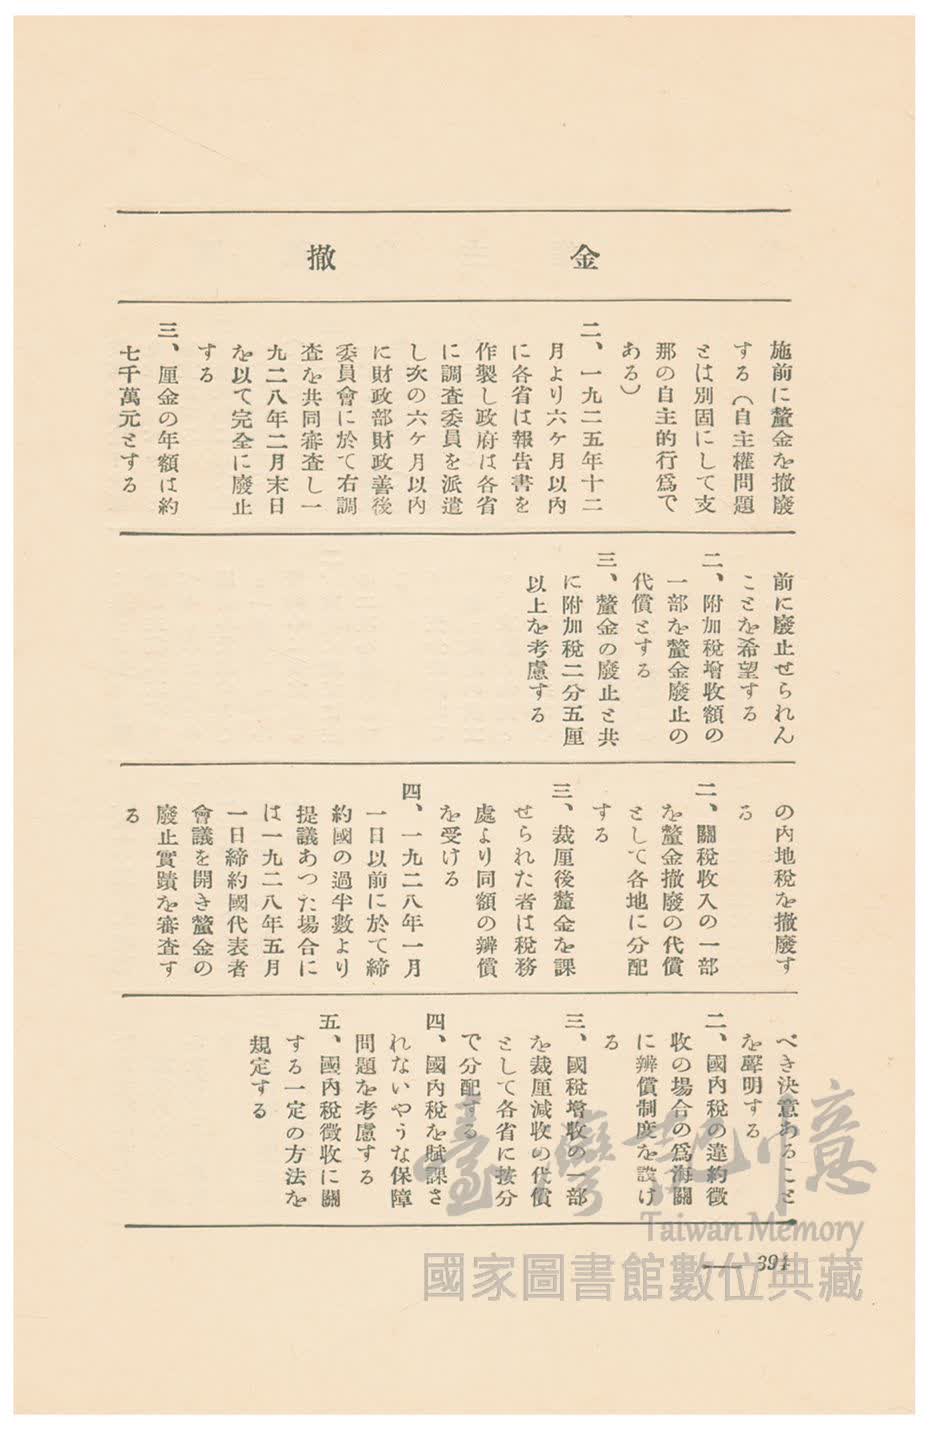 金　撤
施前に釐金を撤廢
する（自主權問題
とは別固にして支
那の自主的行爲で
ある）
二、一九二五年十二
月より六ケ月以内
に各省は報告書を
作製し政府は各省
に調査委員を派遣
し次の六ケ月以内
に財政部財政善後
委員會に於て右調
査を共同審査し一
九二八年二月末日
を以て完全に廢止
する
三、厘金の年額は約
七千萬元とする
前に廢止せられん
ことを希望する
二、附加稅增收額の
一部を釐金廢止の
代償とする
三、釐金の廢止と共
に附加稅二分五厘
以上を考慮する
の内地稅を撤廢す
る
二、關稅收入の一部
を釐金撤廢の代償
として各地に分配
する
三、裁厘後釐金を課
せられた者は稅務
處より同額の辨償
を受ける
四、一九二八年一月
一日以前に於て締
約國の過半數より
提議あつた場合に
は一九二八年五月
一日締約國代表者
會議を開き釐金の
廢止實蹟を審査す
る
べき決意あること
を聲明する
二、國内稅の違約徵
收の場合の爲海關
に辨償制度を設け
る
三、國稅增收の一部
を裁厘減收の代償
として各省に按分
で分配する
四、國内稅を賦課さ
れないやうな保障
問題を考慮する
五、國内稅徵收に關
する一定の方法を
規定する
394
臺灣記憶
Taiwan Memory
國家圖書館數位典藏